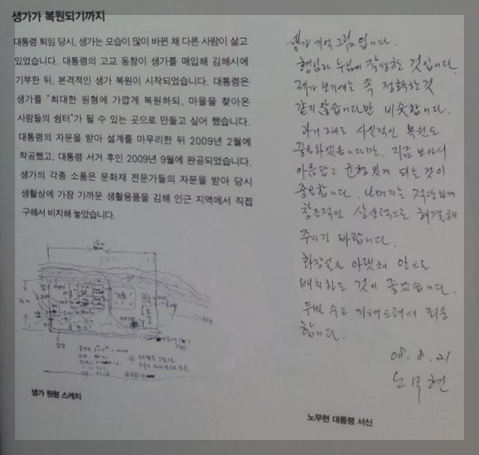 생가가 복원되기까지
대통령 퇴임 당시, 생가는 모습이 많이 바뀐 채 다른 사람이 살고
있었습니다. 대통령의 고교 동창이 생가를 매입해 김해시에
기부한 뒤, 본격적인 생가 복원이 시작되었습니다. 대통령은
생가를 "최대한 원형에 가깝게 복원하되, 마을을 찾아온
사람들의 쉼터"가 될 수 있는 곳으로 만들고 싶어 했습니다.
대통령의 자문을 받아 설계를 마무리한 뒤 2009년 2월에
착공했고, 대통령 서거 후인 2009년 9월에 완공되었습니다.
생가의 각종 소품은 문화재 전문가들의 자문을 받아 당시
생활상에 가장 가까운 생활용품을 김해 인근 지역에서 직접
구해서 비치해 놓았습니다.
생가 원형 스케치
생가 기억 그림입니다.
형님과 누님이 작성한 것입니다.
제가 보기에는 꼭 정확한 것
같지 않습니다만 비슷합니다.
과거 그대로 사실적인 복원도
중요하겠습니다만, 지금 보아서
아름답고 균형 있게 되는 것이
중요합니다. 나머지는 적당하게
창조적인 상상력으로 해결해
주시기 바랍니다.
화장실은 아랫채 안으로
배치하는 것이 좋겠습니다.
두번 수고 끼쳐드려서 죄송
합니다.
08. 8. 21
노무현
노무현 대통령 서신